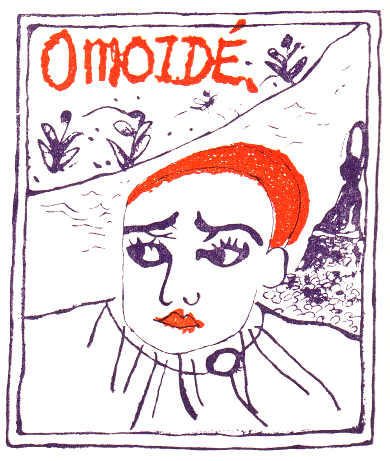 OMOIDÉ.